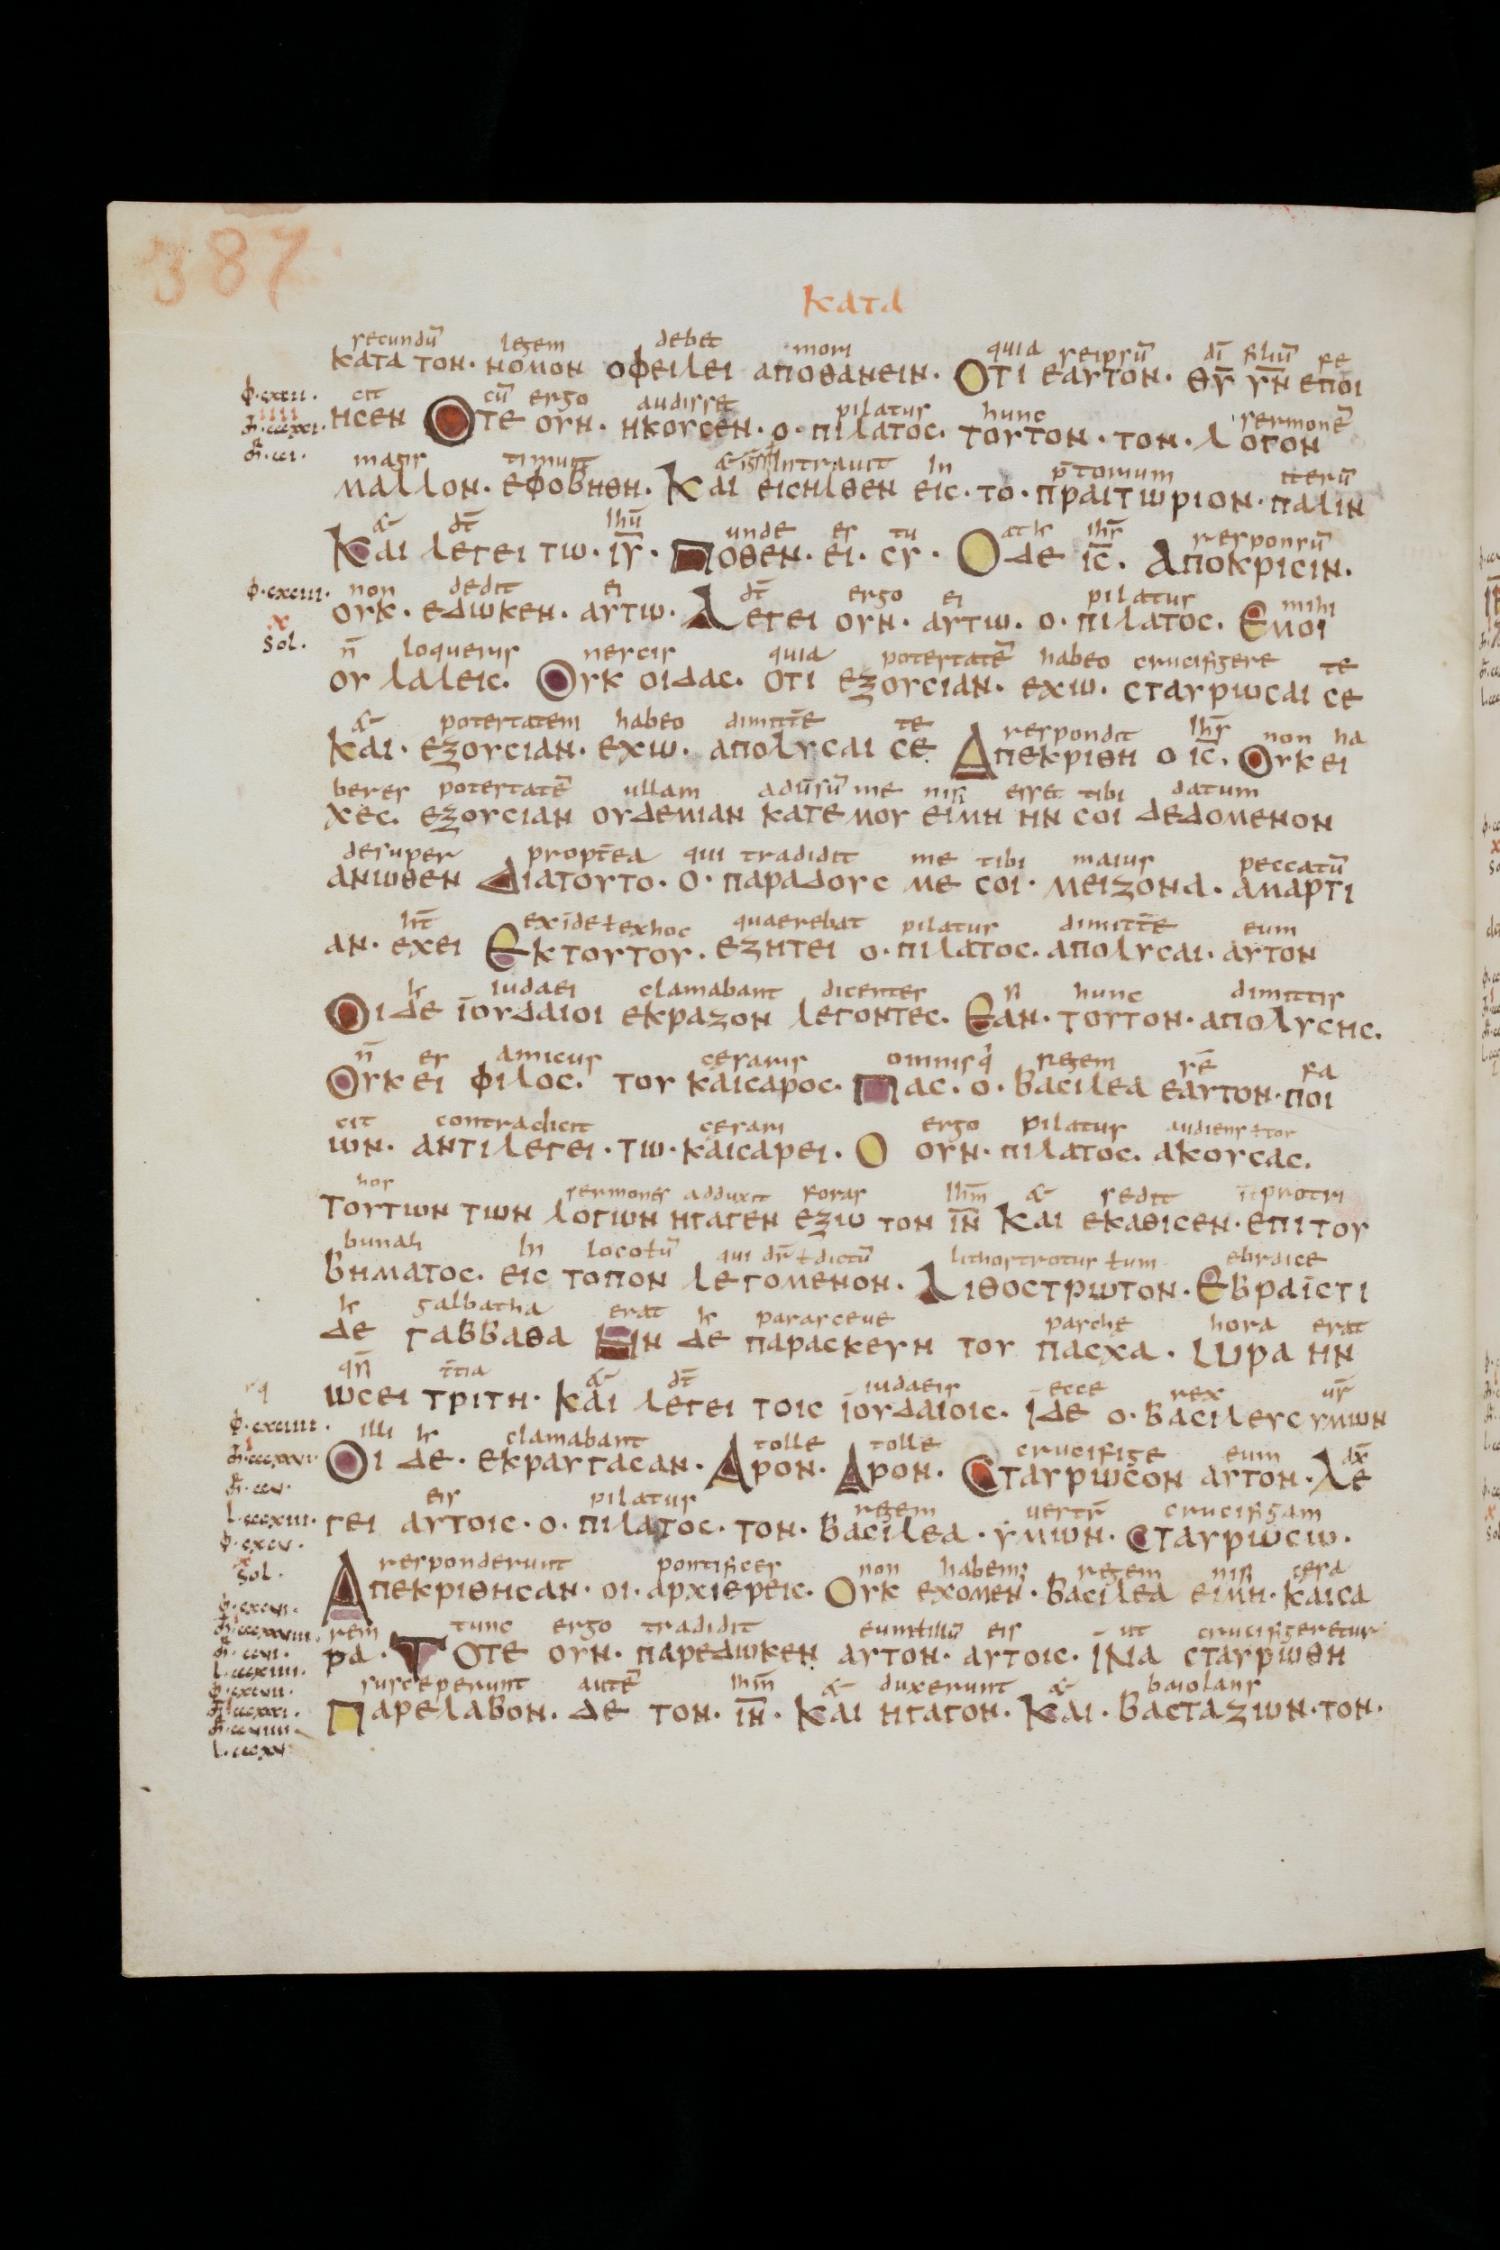 387
κατα
secundū legem debet mori quia seipsū dī filiū fe
κατα τον· νομον οφειλει αποθανειν· Οτι εαυτον· θῡ ῡν εποι
cit cū ergo audisset pilatus hunc sermonē
ησεν Οτε ουν· ηκουσεν· ο· πιλατος· τουτον· τον· λογον
magis timuit & intrauit in p̄torium iterū
μαλλον· εφοβηθη· Και εισηλθεν εις· το· πραιτωριον· παλιν
& dī ihū unde es tu ihs responsū
Και λεγει τω· ιῡ· Ποθεν· ει· συ· Ο δε ις̄· Αποκρισιν·
non dedit ei dī ergo ei pilatus mihi
ουκ· εδωκεν· αυτω· Λεγει ουν· αυτω· ο· πιλατος· Εμοι
n̄ loqueris nescis quia potestatē habeo crucifigere te
ου λαλεις· Ουκ οιδας· οτι εξουσιαν· εχω· σταυρωσαι σε
& potestatem habeo dimittē te respondit ihs non ha
και· εξουσιαν· εχω· απολυσαι σε Απεκριθη ο ις̄· Ουκ ει
beres potestatē ullam adūsū me nisi esset tibi datum
χες· εξουσιαν ουδεμιαν κατεμου ειμη ην σοι δεδομενον
desuper propt̄ea qui tradidit me tibi maius peccatū
ανωθεν Διατουτο· ο· παραδους με σοι· μειζονα· αμαρτι
h̄t exīde ł exhoc quaerebat pilatus dimittē eum
αν· εχει Εκτουτου· εζητει ο· πιλατος· απολυσαι· αυτον
iudaei clamabant dicentes si hunc dimittis
Οι δε ιουδαιοι εκραζον λεγοντες· Εαν· τουτον· απολυσης·
n̄ es amicus cesaris omnis q̇ regem sē fa
Ουκ ει φιλος· του καισαρος· Πας· ο· βασιλεα εαυτον· ποι
cit contradicit cesari ergo pilatus audiens
ων· αντιλεγει· τω· καισαρει· Ο ουν· πιλατος· ακουσας·
hos sermones adduxit foras ihm & sedit protri
τουτων των λογων ηγαγεν εξω τον ῑν Και εκαθισεν· επι του
bunali in loco qui dr̄ ł dictū lithostrotus ł um ebraice
βηματος· εις τοπον λεγομενον· Λιθοστρωτον· Εβραιστι
galbatha erat parasceue pasche hora erat
δε γαββαθα Ην δε παρασκευη του πασχα· Ωρα ην
t̄tia & dī iudaeis ecce rex ur̄
ωσει τριτη· Και λεγει τοις ιουδαιοις· Ιδε ο· βασιλευς υμων
illi clamabant tolle tolle crucifige eum
Οι δε· εκραυγασαν· Αρον· Αρον· Σταυρωσον αυτον· Λε
eis pilatus regem uestr̄ crucifigam
γει αυτοις· ο· πιλατος· τον· βασιλεα· υμων· Σταυρωσω·
responderunt pontifices non habem; regem nisi cesa
Απεκριθησαν· οι· αρχιερεις· Ουκ εχομεν· βασιλεα ειμη· καισα
rem tunc ergo tradidit eum ł illū eis ut crucifigeretur
ρα· Τοτε ουν· παρεδωκεν αυτον· αυτοις· ινα σταυρωθη
susceperunt autē ihm & duxerunt & baiolans
Παρελαβον· δε τον· ῑν· Και ηγαγον· Και· βασταζων· τον·
sol.
sol.